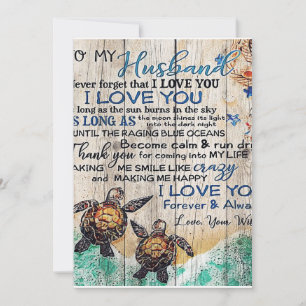 O MY
Husband
ever forget that I LOVE YOU
I LOVE YOU
as long as the sun burns in the sky
S LONG AS the moon shines its light
into the dark night
UNTIL THE RAGING BLUE OCEANS
Become calm & run dr
Thank you for coming into MY LIFE
AKING ME SMILE LIKE crazy
and MAKING ME HAPPY
I LOVE YO
Forever & Alwa
Love, Your Wi